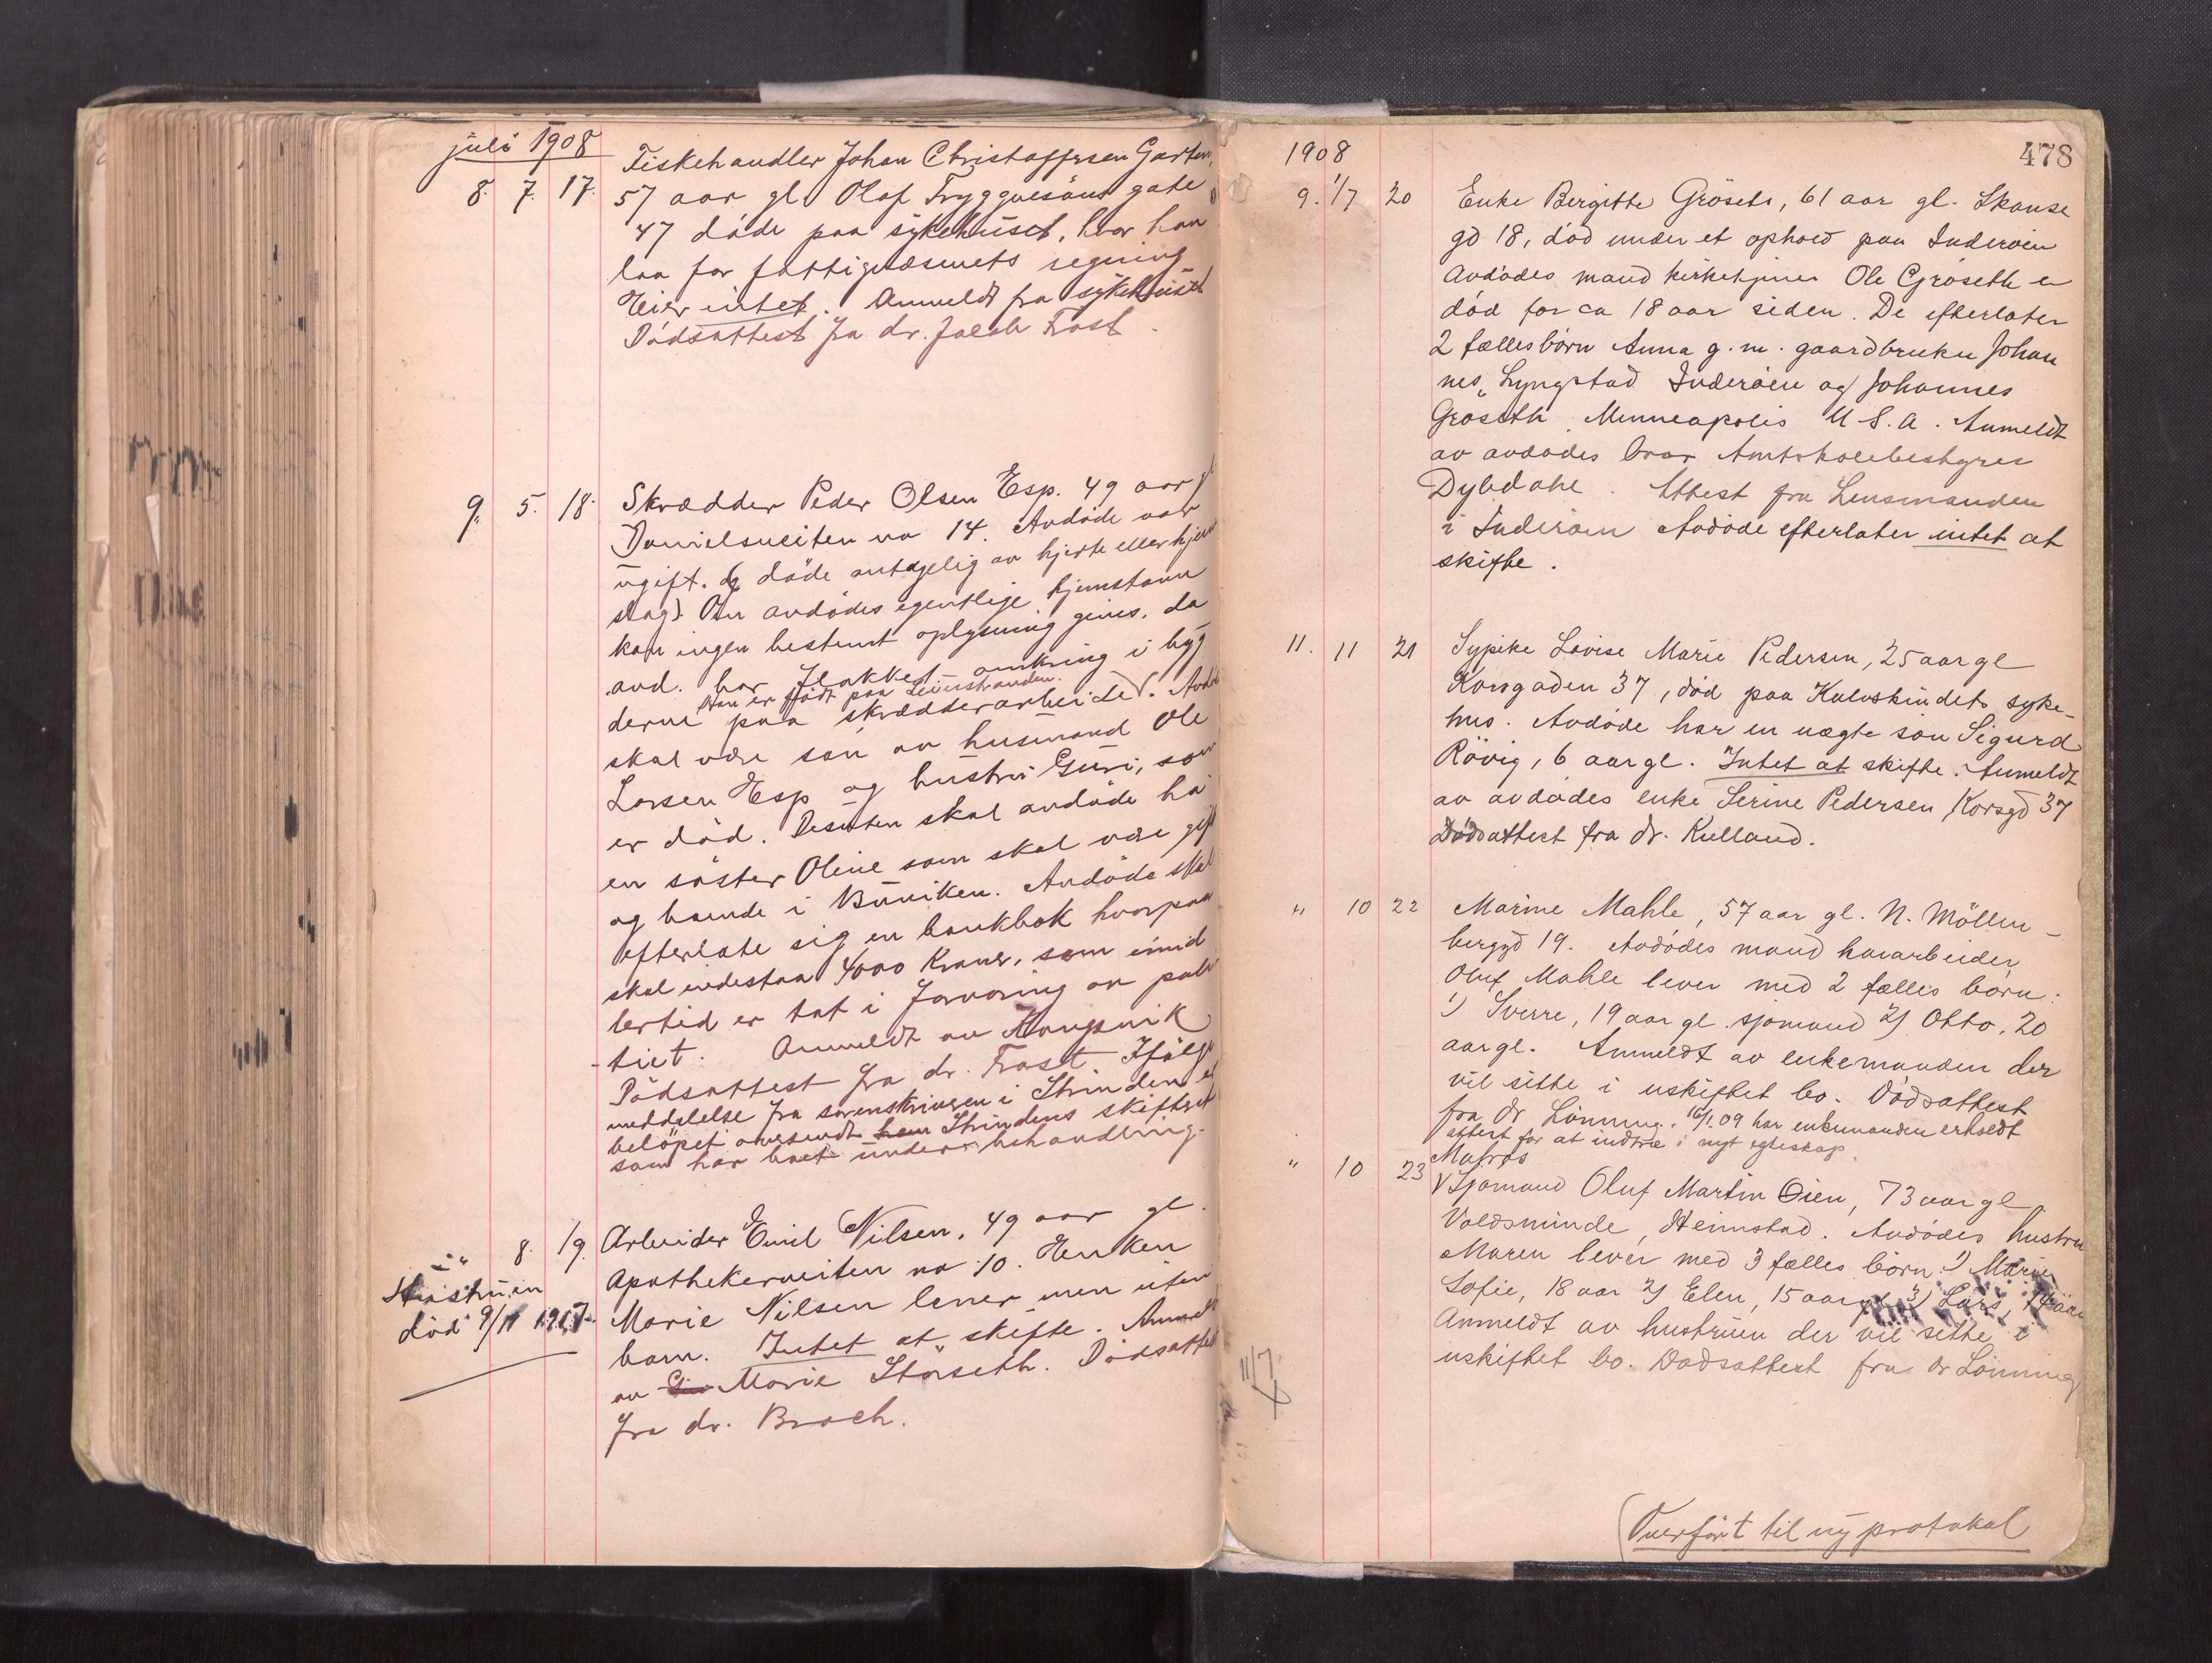 juli 1908
Fiskehandler Johan Christoffersen Garten,
8. 7. 17. 57 aar gl. Olaf Trygguesöns gate
47 döde paa sykehuset, hvor han
laa for fattigvæsenets regning
Eier intet. Anmeldt fra sykehuset
Dödsattest fra dr. Jacob Frost.
9. 5. 18. Skrædder Peder Olsen Esp. 49 aar gl
Danielsveiten no 14. Avdöde var
ugift. (döde antagelig av hjerte eller hjerne
slag). Om avdödes egentlige hjemstavn
kan ingen bestemt oplysning gives, da
avd. har flakket omkring i byg
Han er födt paa Leinstranden.
derne paa skrædderarbeide. Avdöde
skal være sön av husmand Ole
Larsen Esp og hustru Guri, som
er död. Desuten skal avdöde ha
en söster Oline som skal være gift
og boende i Buviken. Avdöde skal
efterlate sig en bankbok hvorpaa
skal indestaa 4000 Kroner, som imid
lertid er tat i forvaring av poli
tiet. Anmeldt av Kongsvik
Dödsattest fra dr. Frost Ifölge
meddelelse fra sorenskriveren i Strinden er
belöpet oversendt Strindens skifteret
som har boet under behandling.
-"- 8. 19. Arbeider Emil Nilsen, 49 aar gl.
Apothekerveiten no 10. Enken
Hustruen
död 9/11 1917.
Marie Nilsen lever men uten
barn. Intet at skifte. Anmeldt
av Marie Störseth. Dödsattest
fra dr. Broch.
478
1908
9. 1/7 20 Enke Bergitte Gröseth, 61 aar gl. Skanse
gd 18, död under et ophold paa Inderöen
Avdödes mand kirketjener Ole Gröseth er
död for ca 18 aar siden. De efterlater
2 fællesbörn Anna g.m. gaardbruker Johan
nes Lyngstad Inderöen og Johannes
Gröseth Minneapolis U.S.A. Anmeldt
av avdödes bror Amtskolebestyrer
Dybdahl. Attest fra Lensmanden
i Inderöen Avdöde efterlater intet at
skifte.
11. 11 21 Sypike Lovise Marie Pedersen, 25 aar gl
Korsgaden 37, död paa Kalvskindets syke-
hus. Avdöde har en uægte sön Sigurd
Rövig, 6 aar gl. Intet at skifte. Anmeldt
av avdödes enke Serine Pedersen Korsgd 37
Dödsattest fra dr. Kulland.
" 10 22 Marine Mahle, 57 aar gl. N. Möllen-
berggd 19. Avdödes mand havarbeider
Oluf Mahle lever med 2 fælles börn:
1) Sverre, 19 aar gl. sjömand 2) Otto, 20
aar gl. Anmeldt av enkemanden der
vil sitte i uskiftet bo. Dödsattest
fra dr Lönning. 16/1 09 har enkemanden erholdt
attest for at indtræ i nyt egteskap.
Matros
" 10 23 Sjömand Oluf Martin Öien, 73 aar gl
Voldsminde, Heimstad. Avdödes hustru
Maren lever med 3 fælles börn: 1) Maren
Sofie, 18 aar 2) Elen, 15 aar gl 3) Lars, 14 aar
Anmeldt av hustruen der vil sitte i
uskiftet bo. Dödsattest fra dr Lönning
11/7
Overfört til ny protokol